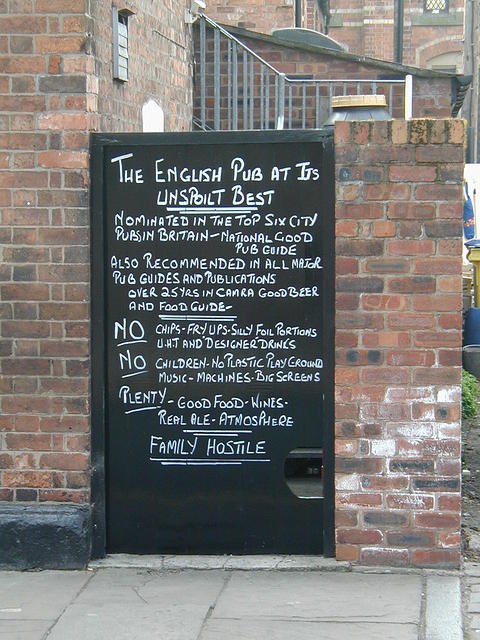 THE ENGLISH PUB AT ITS
UNSPOILT BEST
NOMINATED IN THE TOP SIX CITY
PUBS IN BRITAIN - NATIONAL GOOD
PUB GUIDE
ALSO RECOMMENDED IN ALL MAJOR
PUB GUIDES AND PUBLICATIONS
OVER 25 YRS IN CAMRA GOOD BEER
AND FOOD GUIDE-
NO CHIPS - FRY UPS - SILLY FOIL PORTIONS
U.H.T AND DESIGNER DRINKS
NO CHILDREN - NO PLASTIC PLAY GROUND
MUSIC - MACHINES - BIG SCREENS
PLENTY - GOOD FOOD - WINES -
REAL ALE - ATMOSPHERE
FAMILY HOSTILE